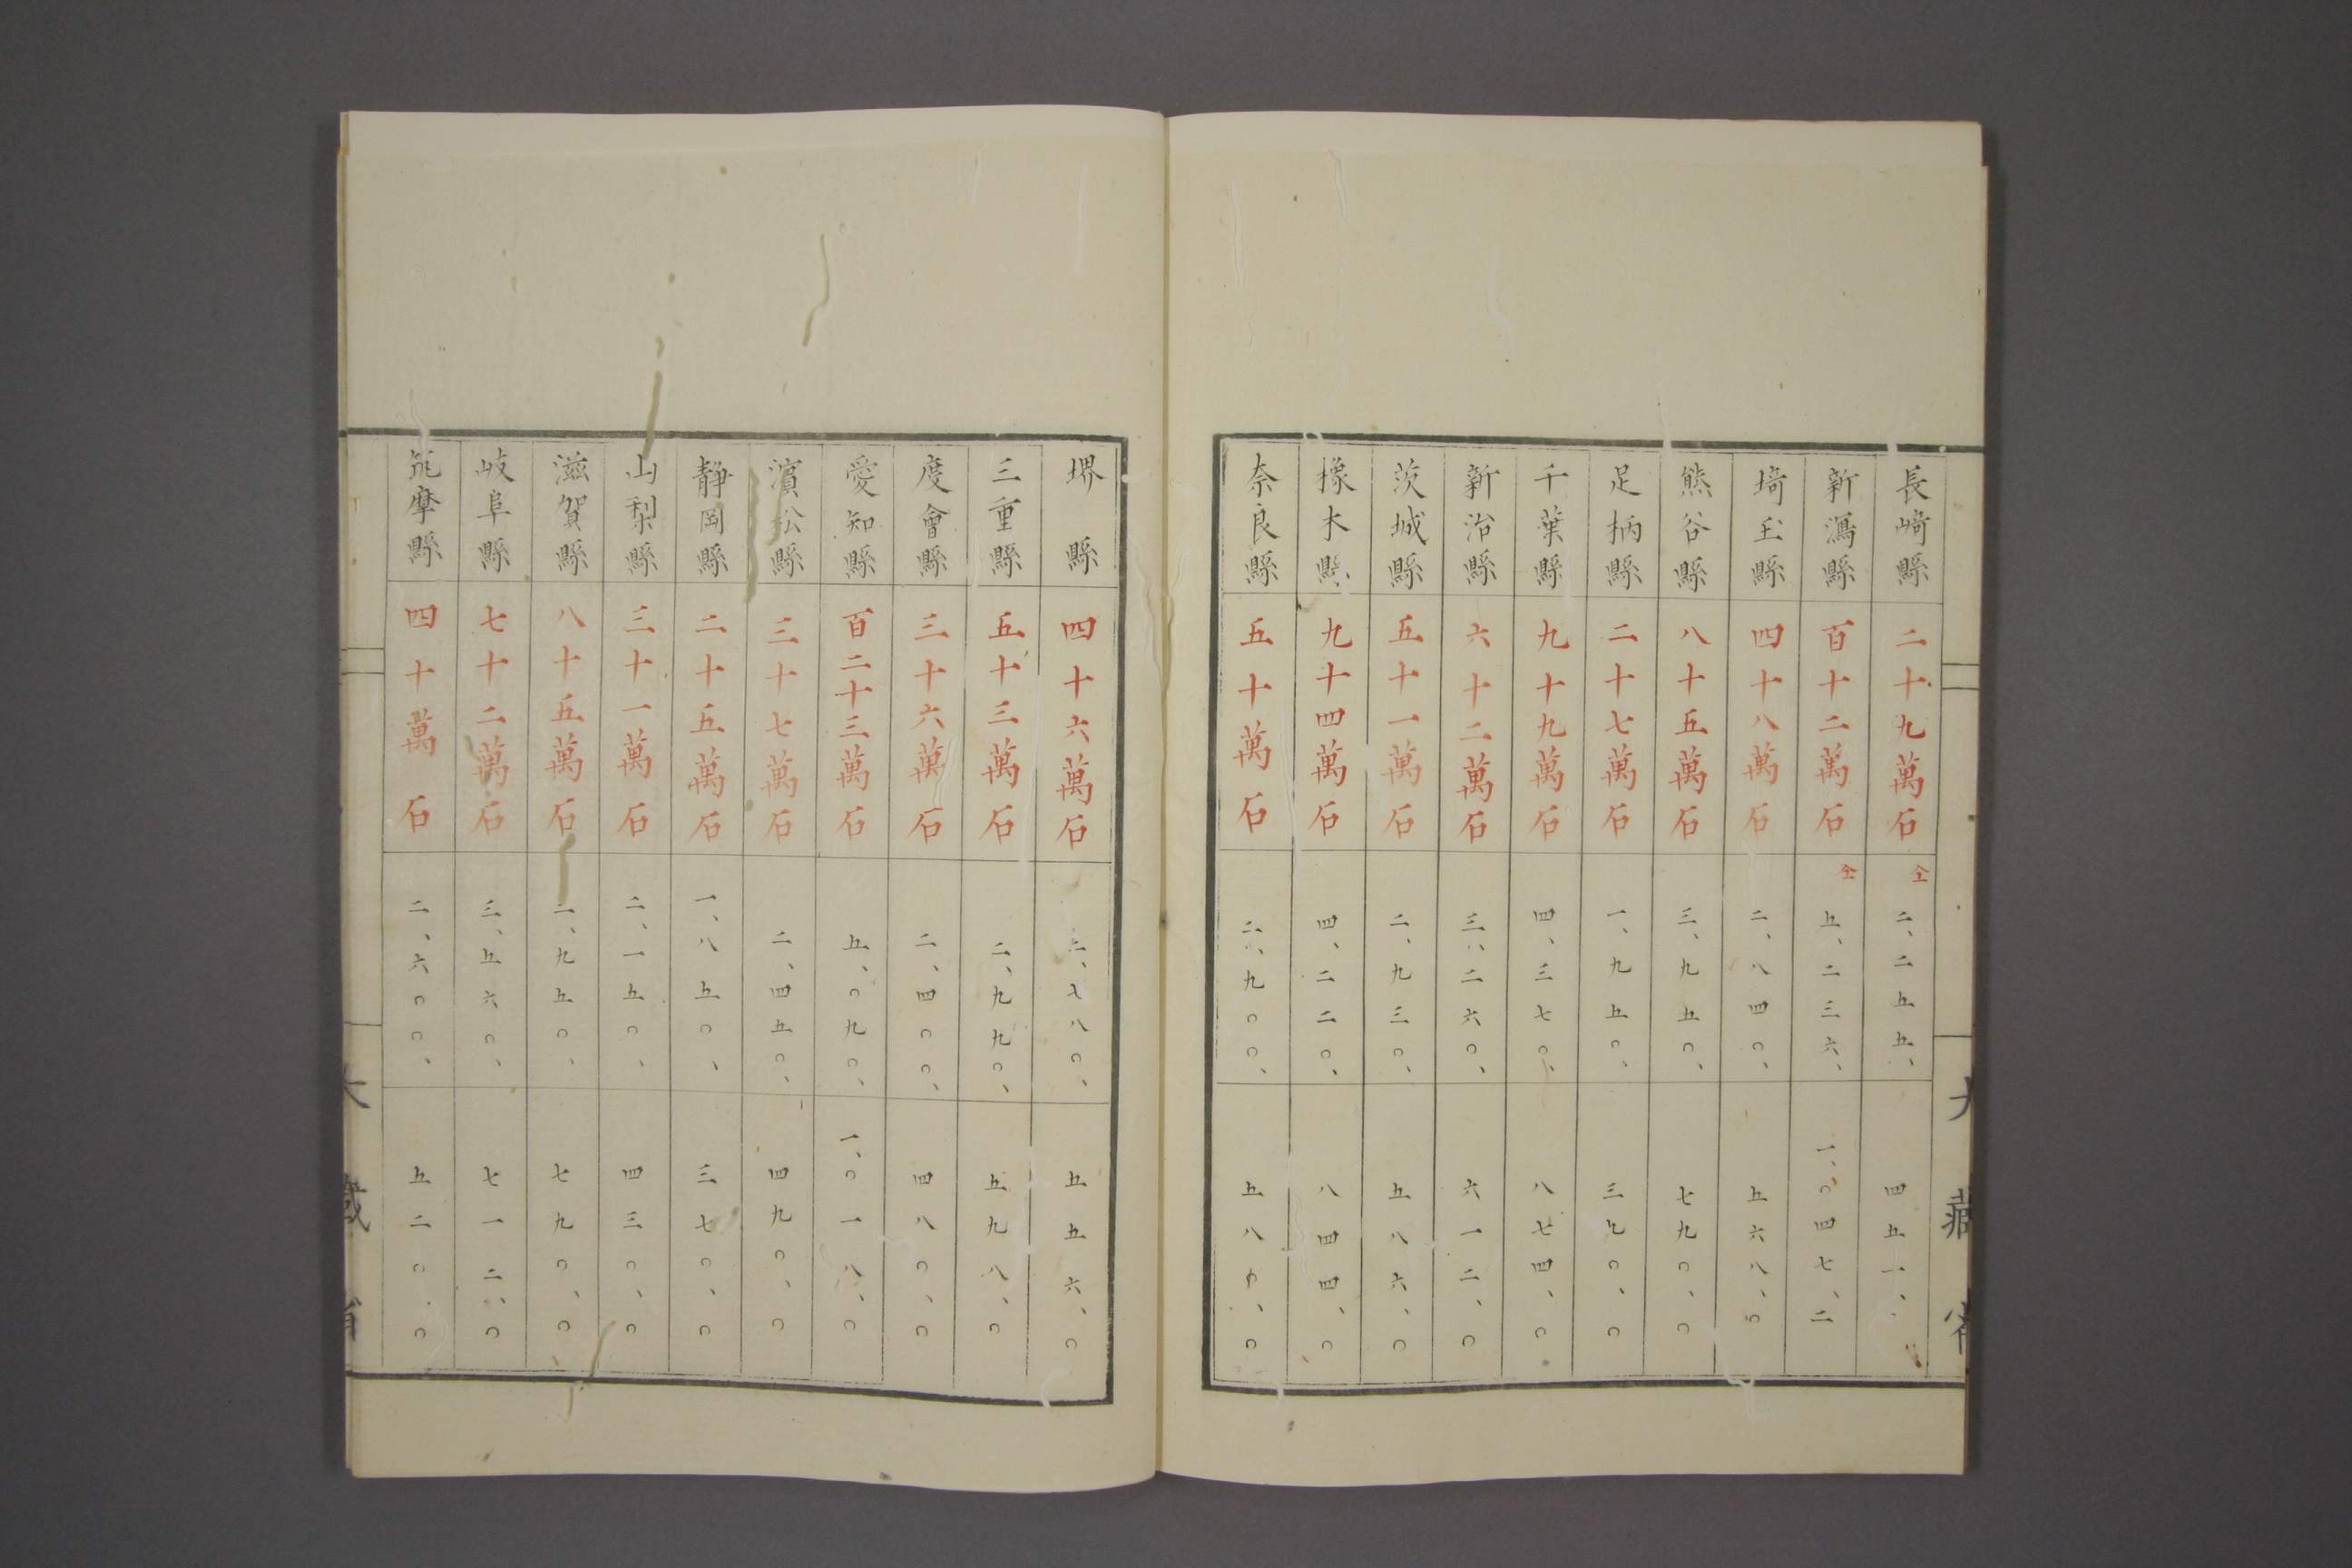 長崎縣 二十九萬石 仝 二、二五五、 四五一、
新潟縣 百十二萬石 仝 五、二三六、 一、〇四七、二
埼玉縣 四十八萬石 二、八四〇、 五六八、〇
熊谷縣 八十五萬石 三、九五〇、 七九〇、〇
足柄縣 二十七萬石 一、九五〇、 三九〇、〇
千葉縣 九十九萬石 四、三七〇、 八七四、〇
新治縣 六十二萬石 三、二六〇、 六一二、〇
茨城縣 五十一萬石 二、九三〇、 五八六、〇
橡木縣 九十四萬石 四、二二〇、 八四四、〇
奈良縣 五十萬石 二、九〇〇、 五八〇、〇
大藏省
堺縣 四十六萬石 二、七八〇、 五五六、〇
三重縣 五十三萬石 二、九九〇、 五九八、〇
度會縣 三十六萬石 二、四〇〇、 四八〇、〇
愛知縣 百二十三萬石 五、〇九〇、 一、〇一八、〇
濱松縣 三十七萬石 二、四五〇、 四九〇、〇
靜岡縣 二十五萬石 一、八五〇、 三七〇、〇
山梨縣 三十一萬石 二、一五〇、 四三〇、〇
滋賀縣 八十五萬石 、九五〇、 七九〇、〇
岐阜縣 七十二萬石 三、五六〇、 七一二、〇
筑摩縣 四十萬石 二、六〇〇、 五二〇、〇